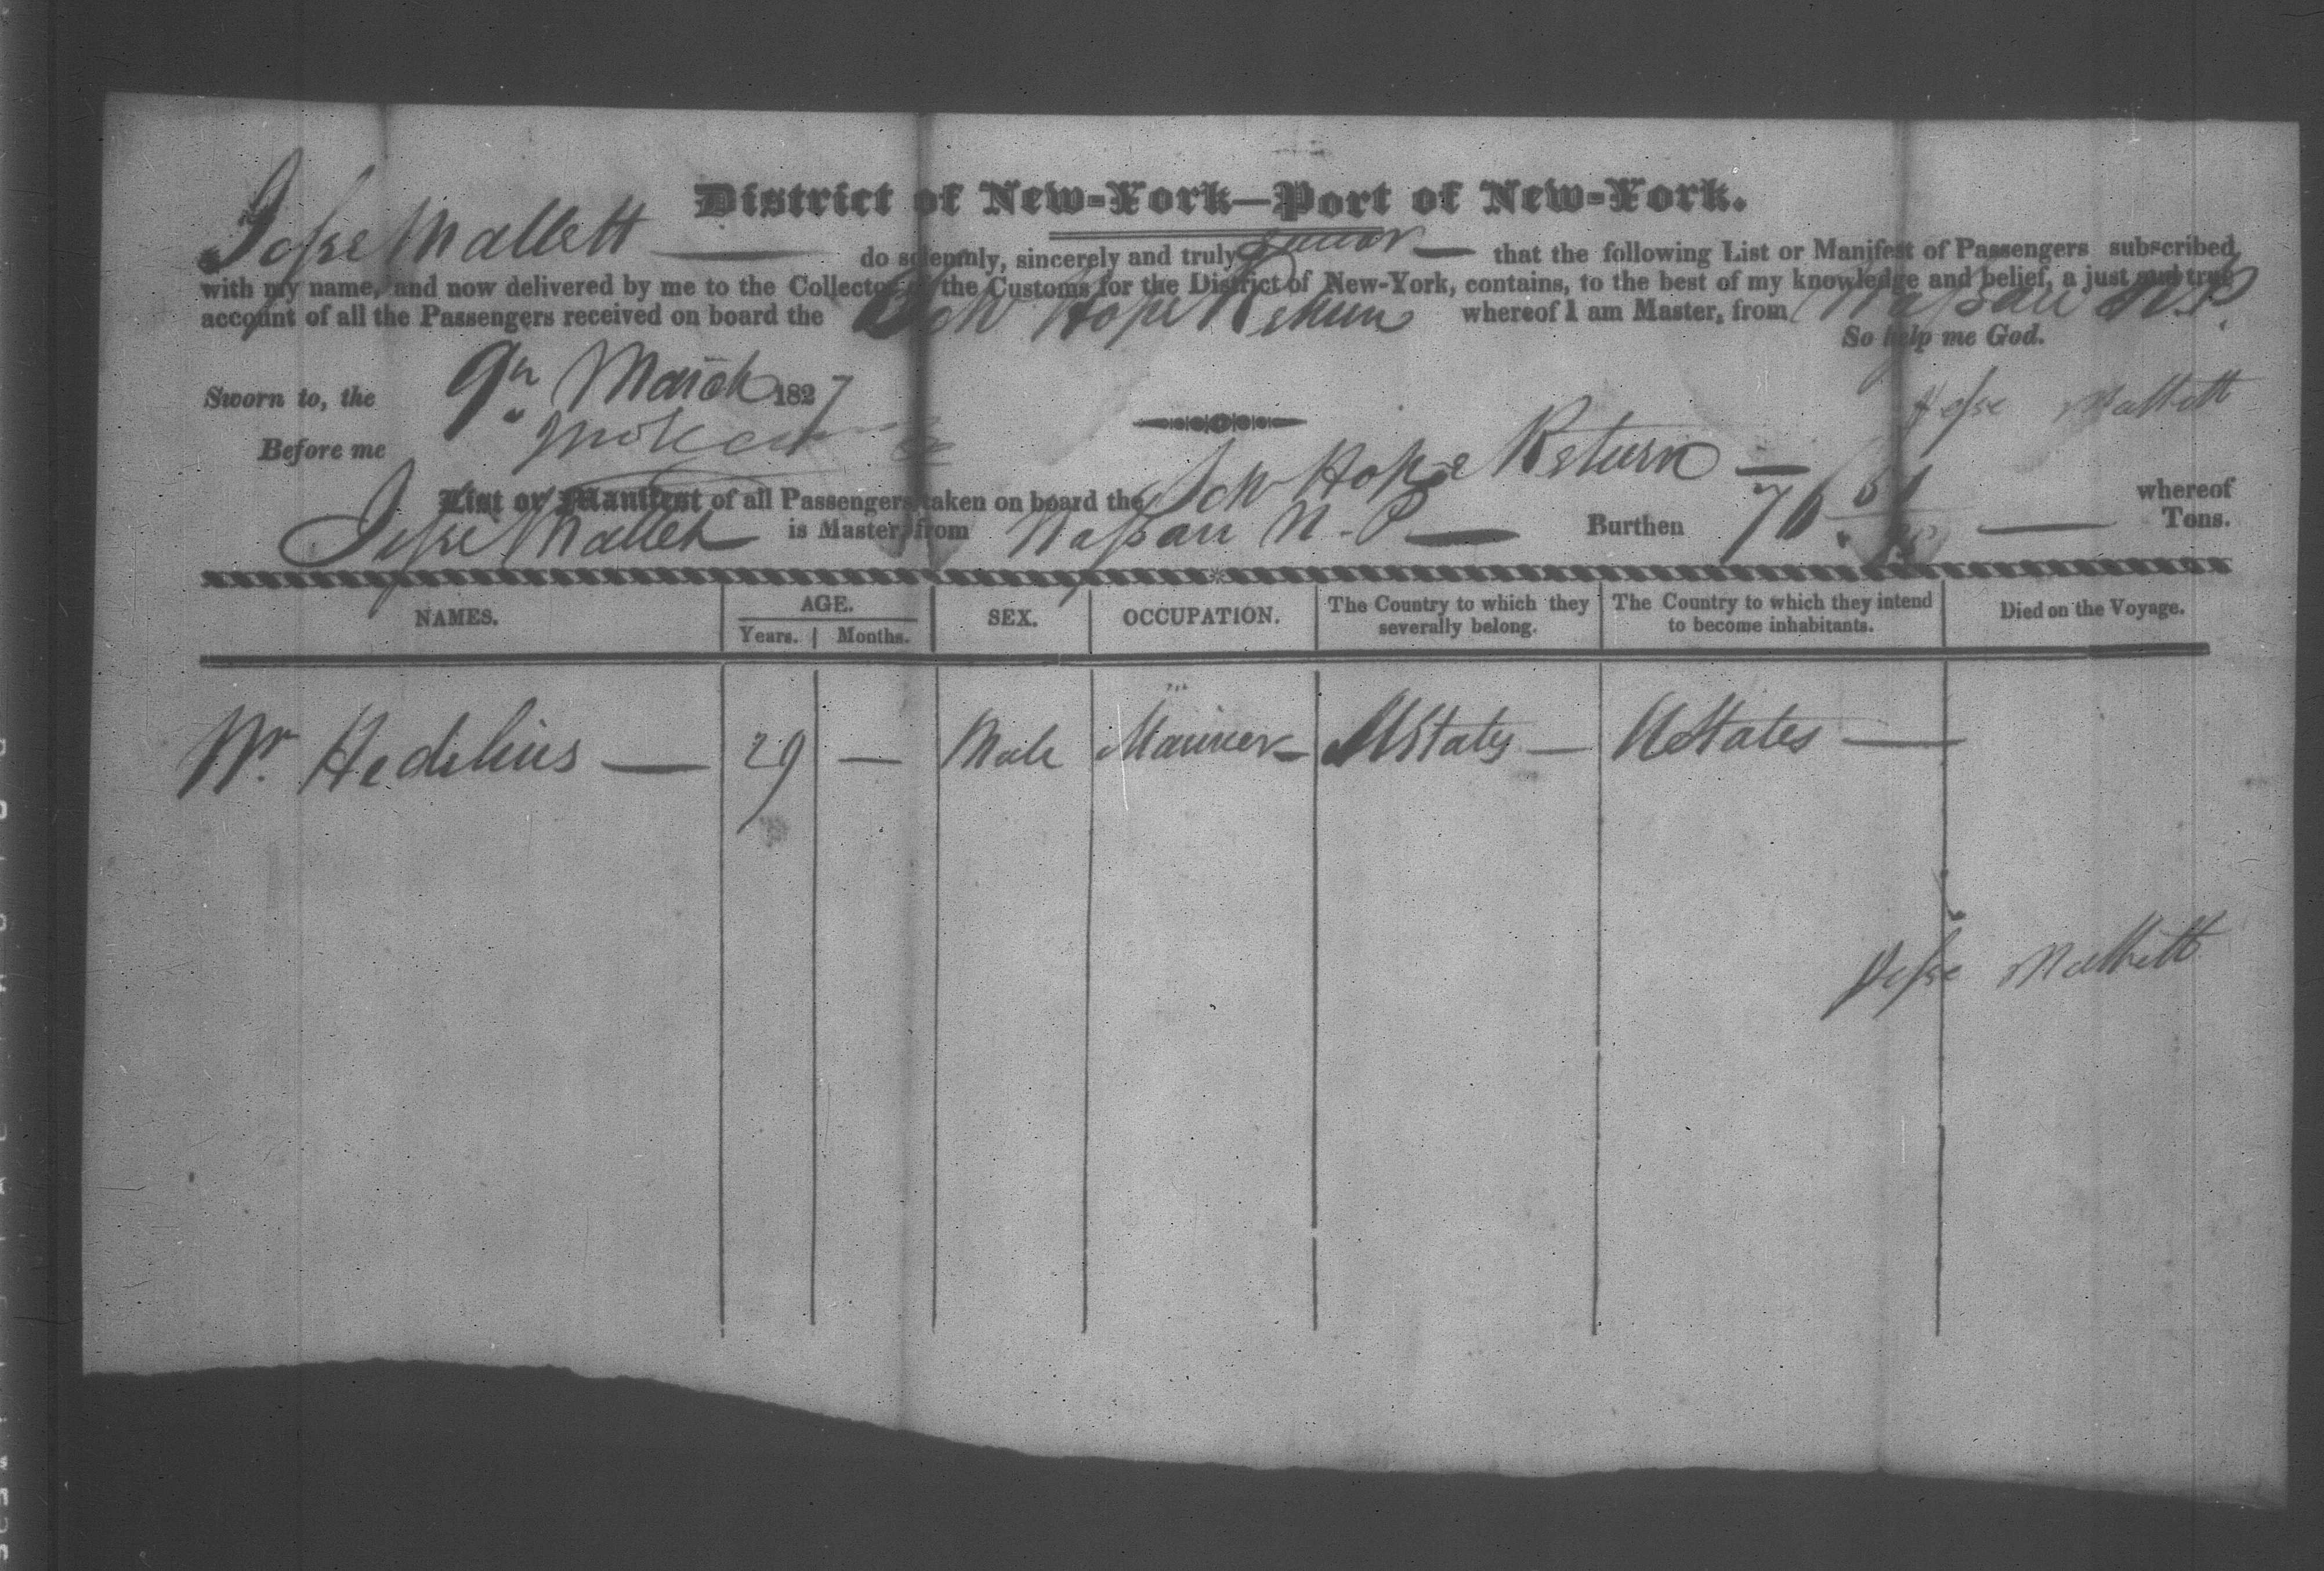 District of New-York—Port of New-York.
Jesse Mallett — do solemnly, sincerely and truly swear — that the following List or Manifest of Passengers subscribed
with my name, and now delivered by me to the Collector of the Customs for the District of New-York, contains, to the best of my knowledge and belief, a just and true
account of all the Passengers received on board the Sch Hope Return whereof I am Master, from Nassau N.P.
So help me God.
Sworn to, the 9th March 1827
Jesse Mallett
Before me
List or Manifest of all Passengers taken on board the Sch Hope Return — whereof
Jesse Mallett is Master, from Nassau N.P — Burthen 76 — Tons.
NAMES. AGE. Years. Months. SEX. OCCUPATION. The Country to which they severally belong. The Country to which they intend to become inhabitants. Died on the Voyage.
Wm Hedelius — 29 — Male Mariner — UStates — UStates —
Jesse Mallett